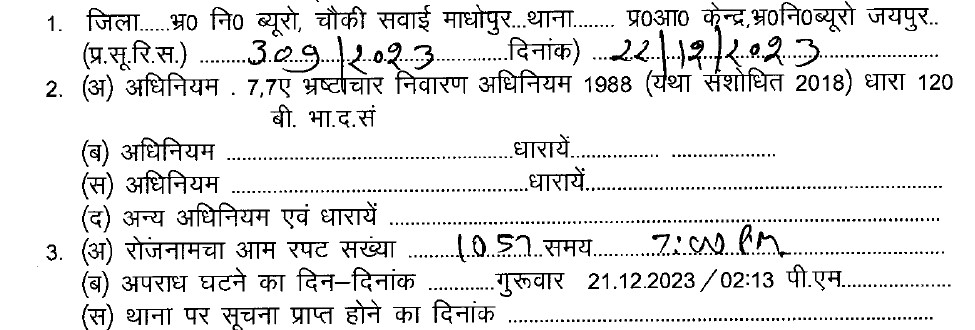 1. जिला......भ्र0 नि0 ब्यूरो, चौकी सवाई माधोपुर...थाना........ प्र0आ0 केन्द्र,भ्र0नि0ब्यूरो जयपुर..
(प्र.सू.रि.स.) ........309/2023...........दिनांक) ..22/12/2023..................
2. (अ) अधिनियम . 7,7ए भ्रष्टाचार निवारण अधिनियम 1988 (यथा संशोधित 2018) धारा 120
बी. भा.द.सं
(ब) अधिनियम ..........................................धारायें............. ................
(स) अधिनियम ............................................धारायें....................................................
(द) अन्य अधिनियम एवं धारायें ................................................................................
3. (अ) रोजनामचा आम रपट सख्या .......1057..समय.........7:00 PM.......................
(ब) अपराध घटने का दिन–दिनांक ............गुरूवार 21.12.2023 / 02:13 पी.एम................
(स) थाना पर सूचना प्राप्त होने का दिनांक ...............................................................